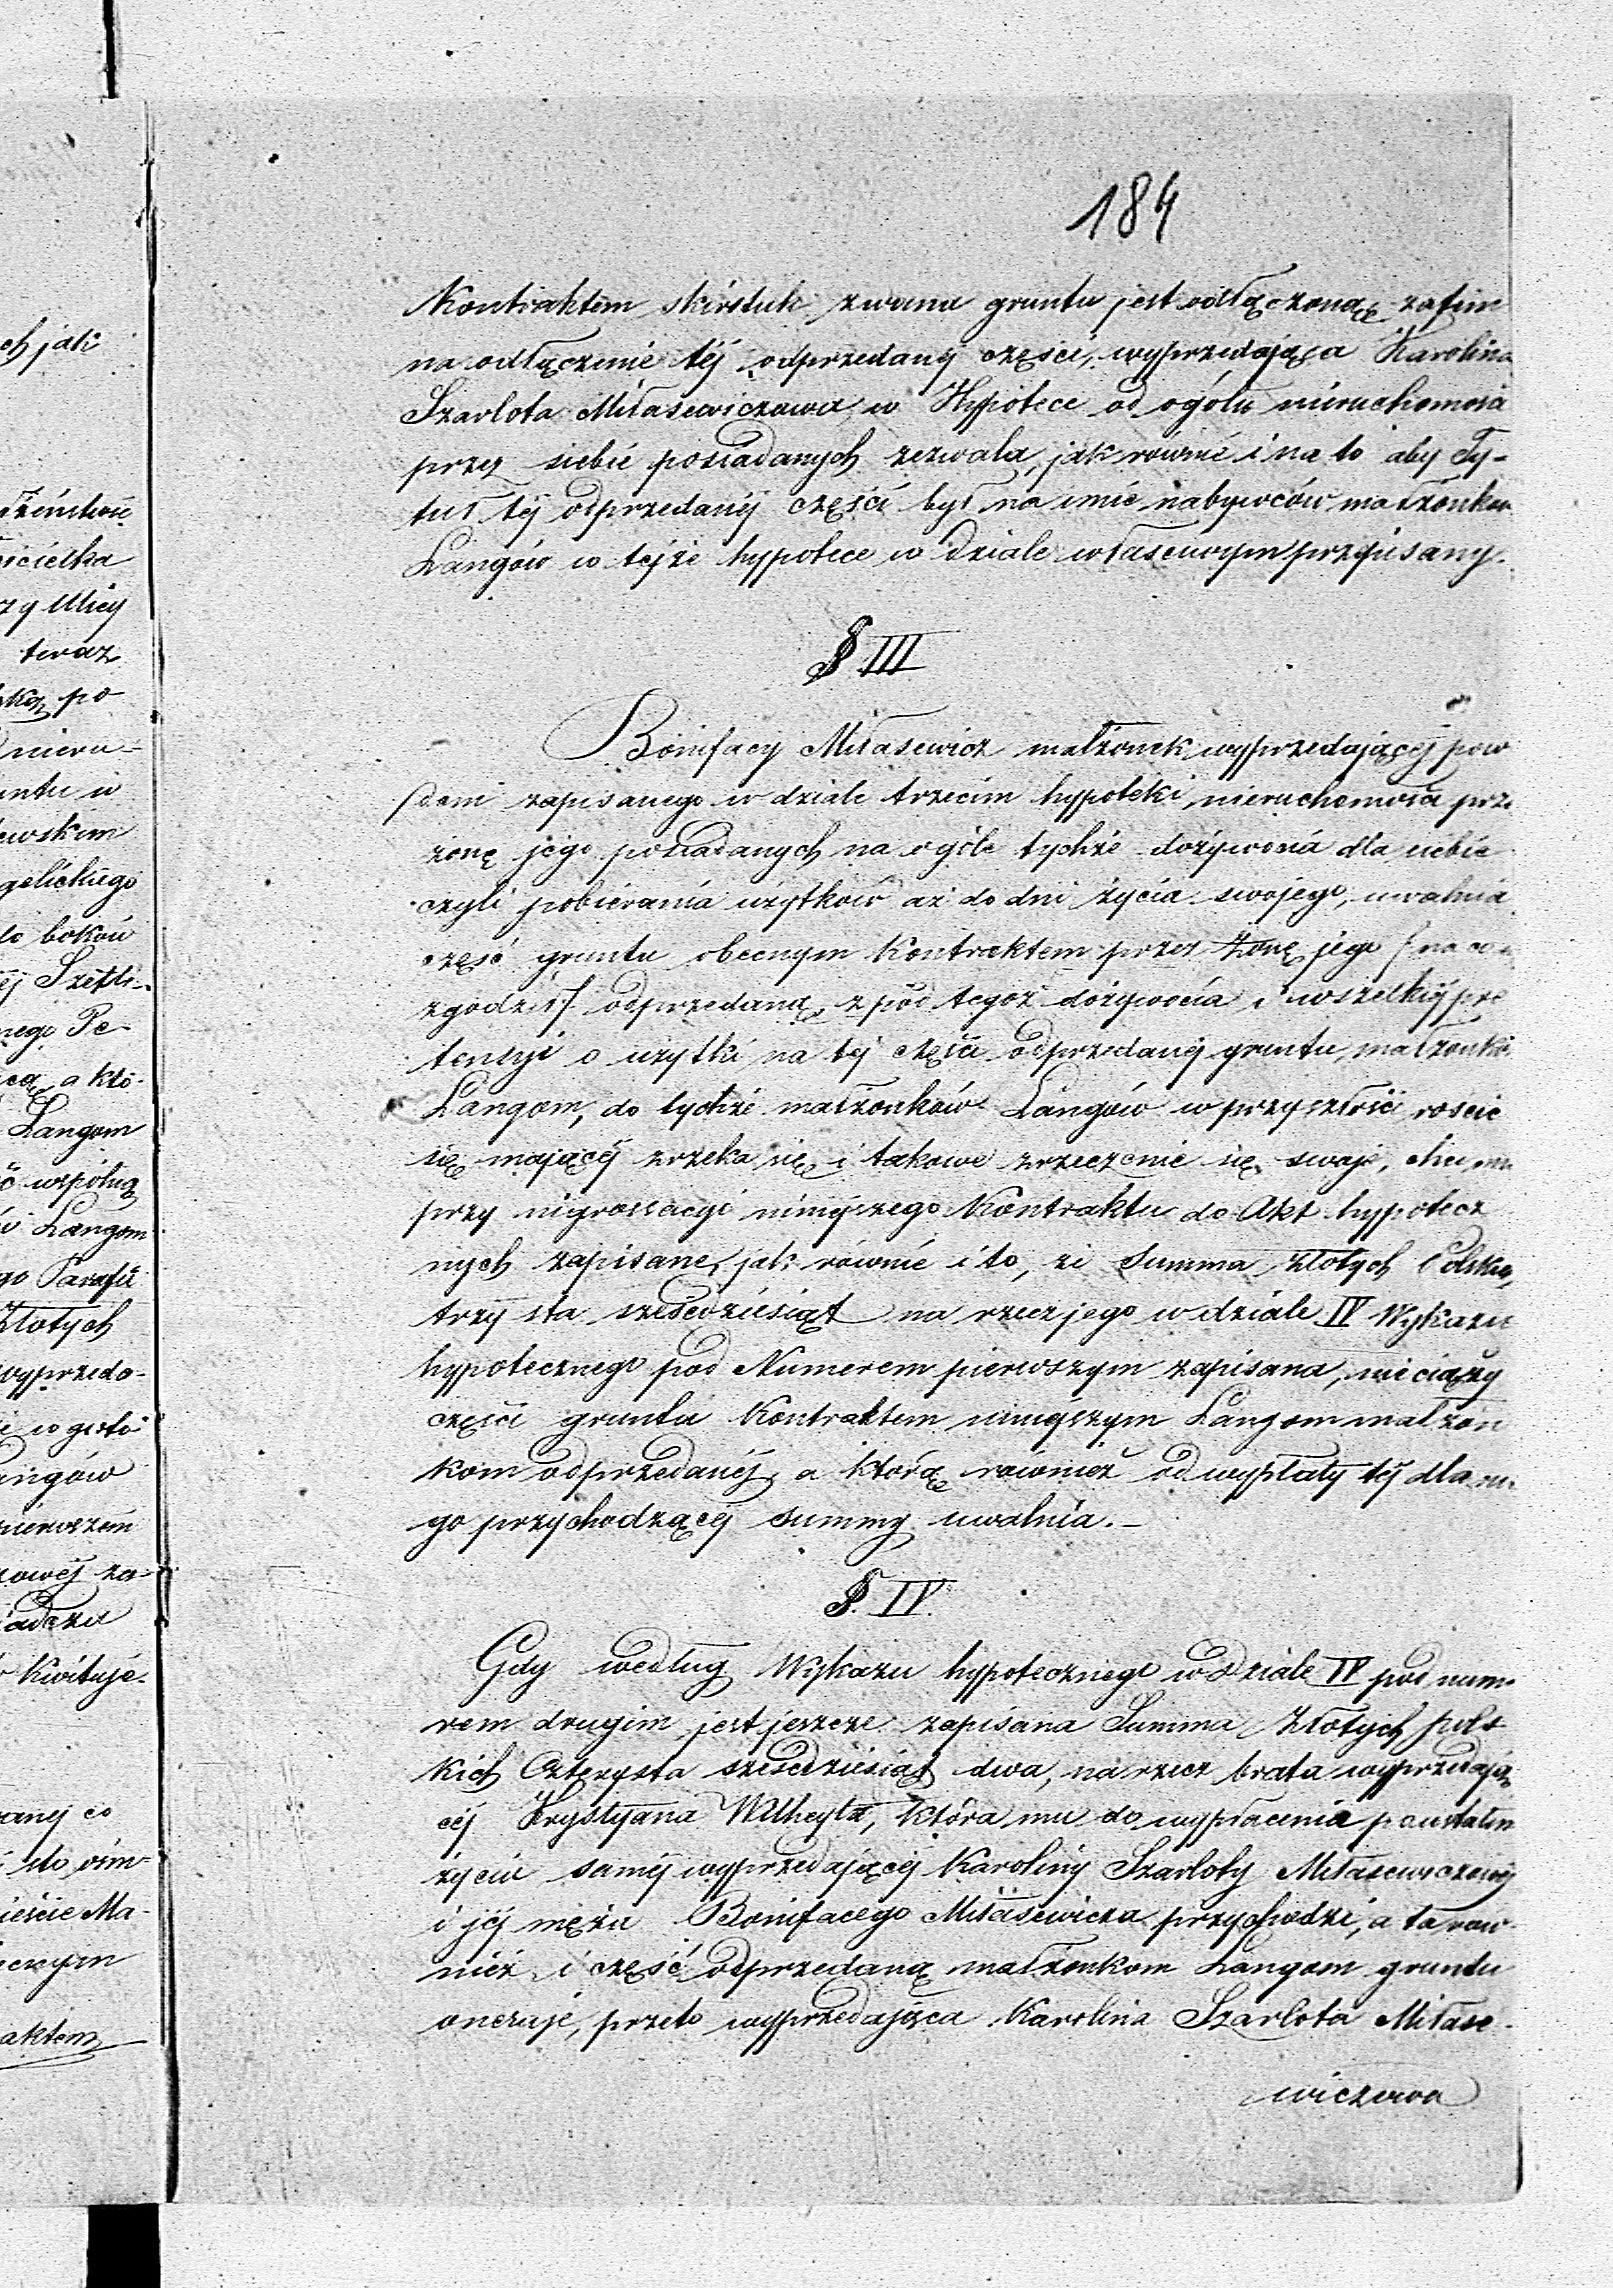 184
Kontraktem skirstuki zwana gruntu jest odłączoną zatem
na odłączenie téj odprzedanéj części, wyprzedająca Karolina
Szarlota Miłasewiczowa, w Hypotece od ogółu nieruchomości
przez siebie posiadanych zezwala, jak równie i na to aby Ty-
tuł téj odprzedanéj części był na imie nabywców małżonków
Langów w tejże hypotece w dziale właściwym przepisany.
§ III
Bonifacy Miłasewicz małżonek wyprzedającéj pow
zapisanego w dziale trzecim hypoteki, nieruchomości prze
żonę jego posiadanych na ogóle tychże dożywocia dla siebie
czyli pobierania użytków aż do dni życia swojego, uwalnia
część gruntu obecnym Kontraktem przez żonę jego /na co
zgodził/ odprzedaną, z pod tegoż dożywocia i wszelkiéj pre
tensyi o użytki na téj części odprzedanéj gruntu, małżonko
Langom, do tychże małżonków Langów w przyszłości rościć
się mającéj zrzeka się, i takowe zrzeczenie się swoje, chce mi
przy nigrossacyi niniejszego Kontraktu do Akt hypotecz
nych zapisane, jak równie i to, że Summa Złotych Polskich
trzy sta sześćdziesiąt na rzecz jego w dziale IV Wykazu
hypotecznego pod Numerem pierwszym zapisana, nie ciąży
części gruntu Kontraktem niniejszym Langom małżon
kom odprzedanéj, a którą również od wypłaty téj dla nie
go przychodzącéj summy uwalnia.-
§. IV.
Gdy według Wykazu hypotecznego w dziale IV pod nume
rem drugim jest jeszcze zapisana Summa Złotych pols
kich Czterysta sześćdziesiąt dwa, na rzecz brata wyprzedają
céj Krystyana Wilheyta, która mu do wypłacenia po ustałem
życiu saméj wyprzedającéj Karoliny Szarloty Miłasewiczowéj
i jéj męża Bonifacego Miłasewicza przychodzi, a ta rów-
nież i część odprzedaną małżonkom Langom gruntu
oneruje, przeto wyprzedająca Karolina Szarlota Miłase-
wiczowa
ch jak
ścicielka
rzy Ulicy
teraz
ską po
nieru-
untu w
ewskim
gelickiego
do boków
éj Szetli-
nego Pe-
cą, a któ-
Langom
ć wspólną
Langom
go Parafii
Złotych
wyprzeda-
ie w goto
Langów
pierwszem
zowéj za-
iadcza
Kwituje.
anéj co
sto ośm-
ieście Ma-
cnym
aktem